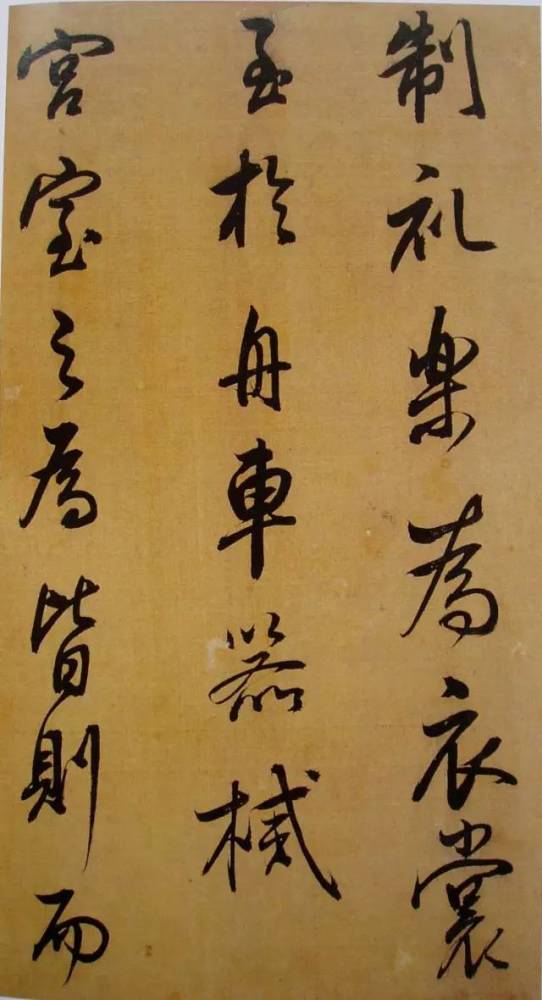 制礼樂為衣裳
至於舟車器械
宮室之為皆則而